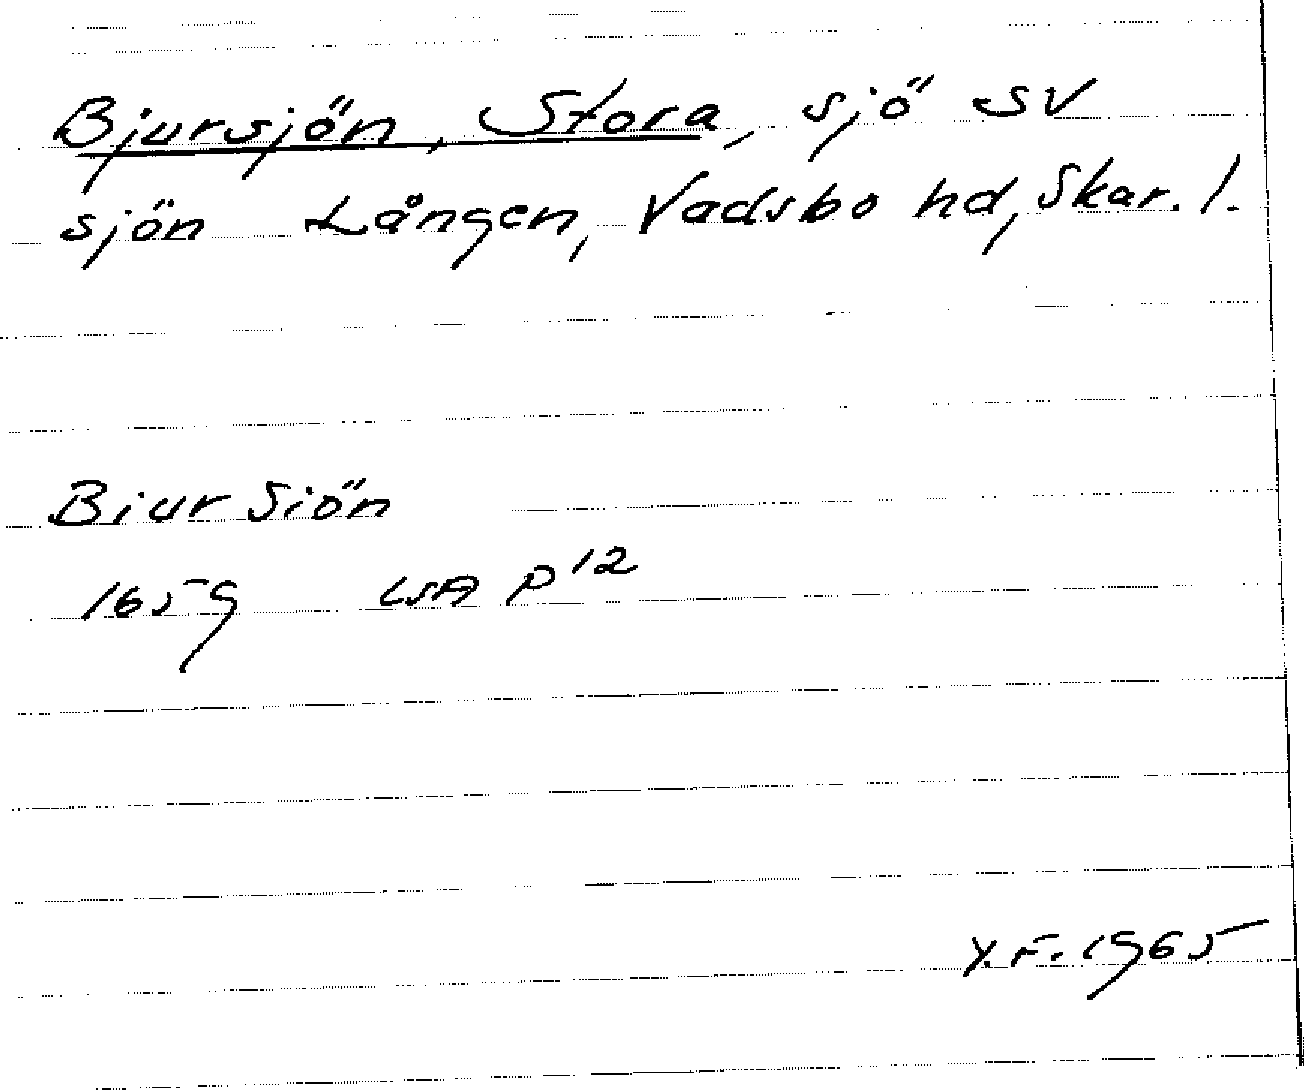 Bjursjön, Stora, sjö SV
sjön Lången, Vadsbo hd, Skar. l.
Biur Siön
1659 LSA P 12
Y.F. 1965